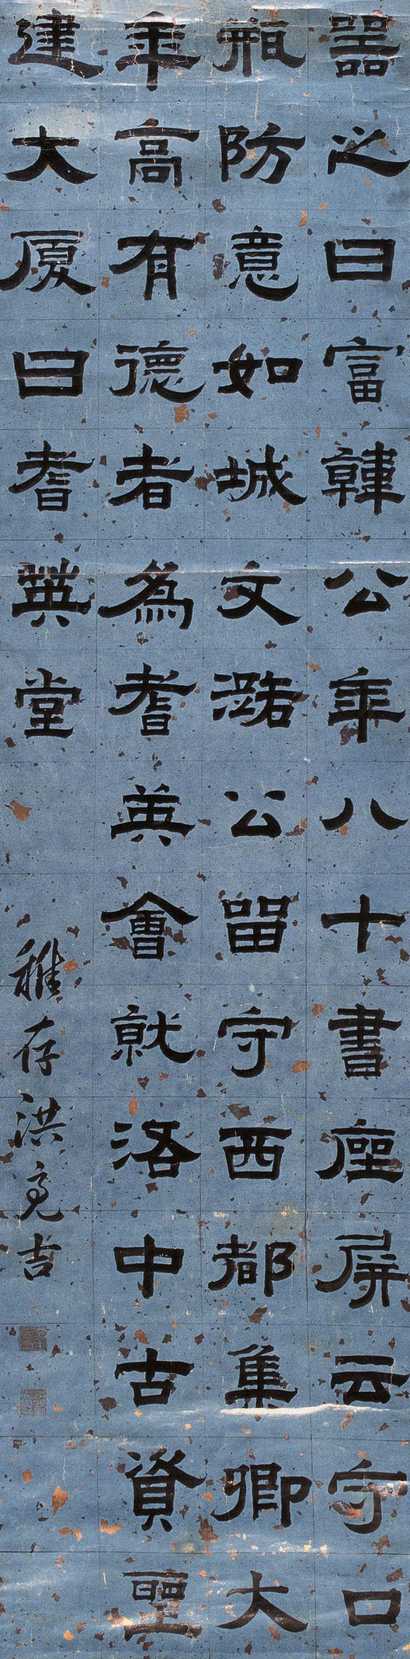 器之曰富韓公年八十書座屏云守口
瓶防意如城文潞公留守西都集卿大
年高有德者為耆英會就洛中古資聖
建大厦曰耆英堂
稚存洪亮吉